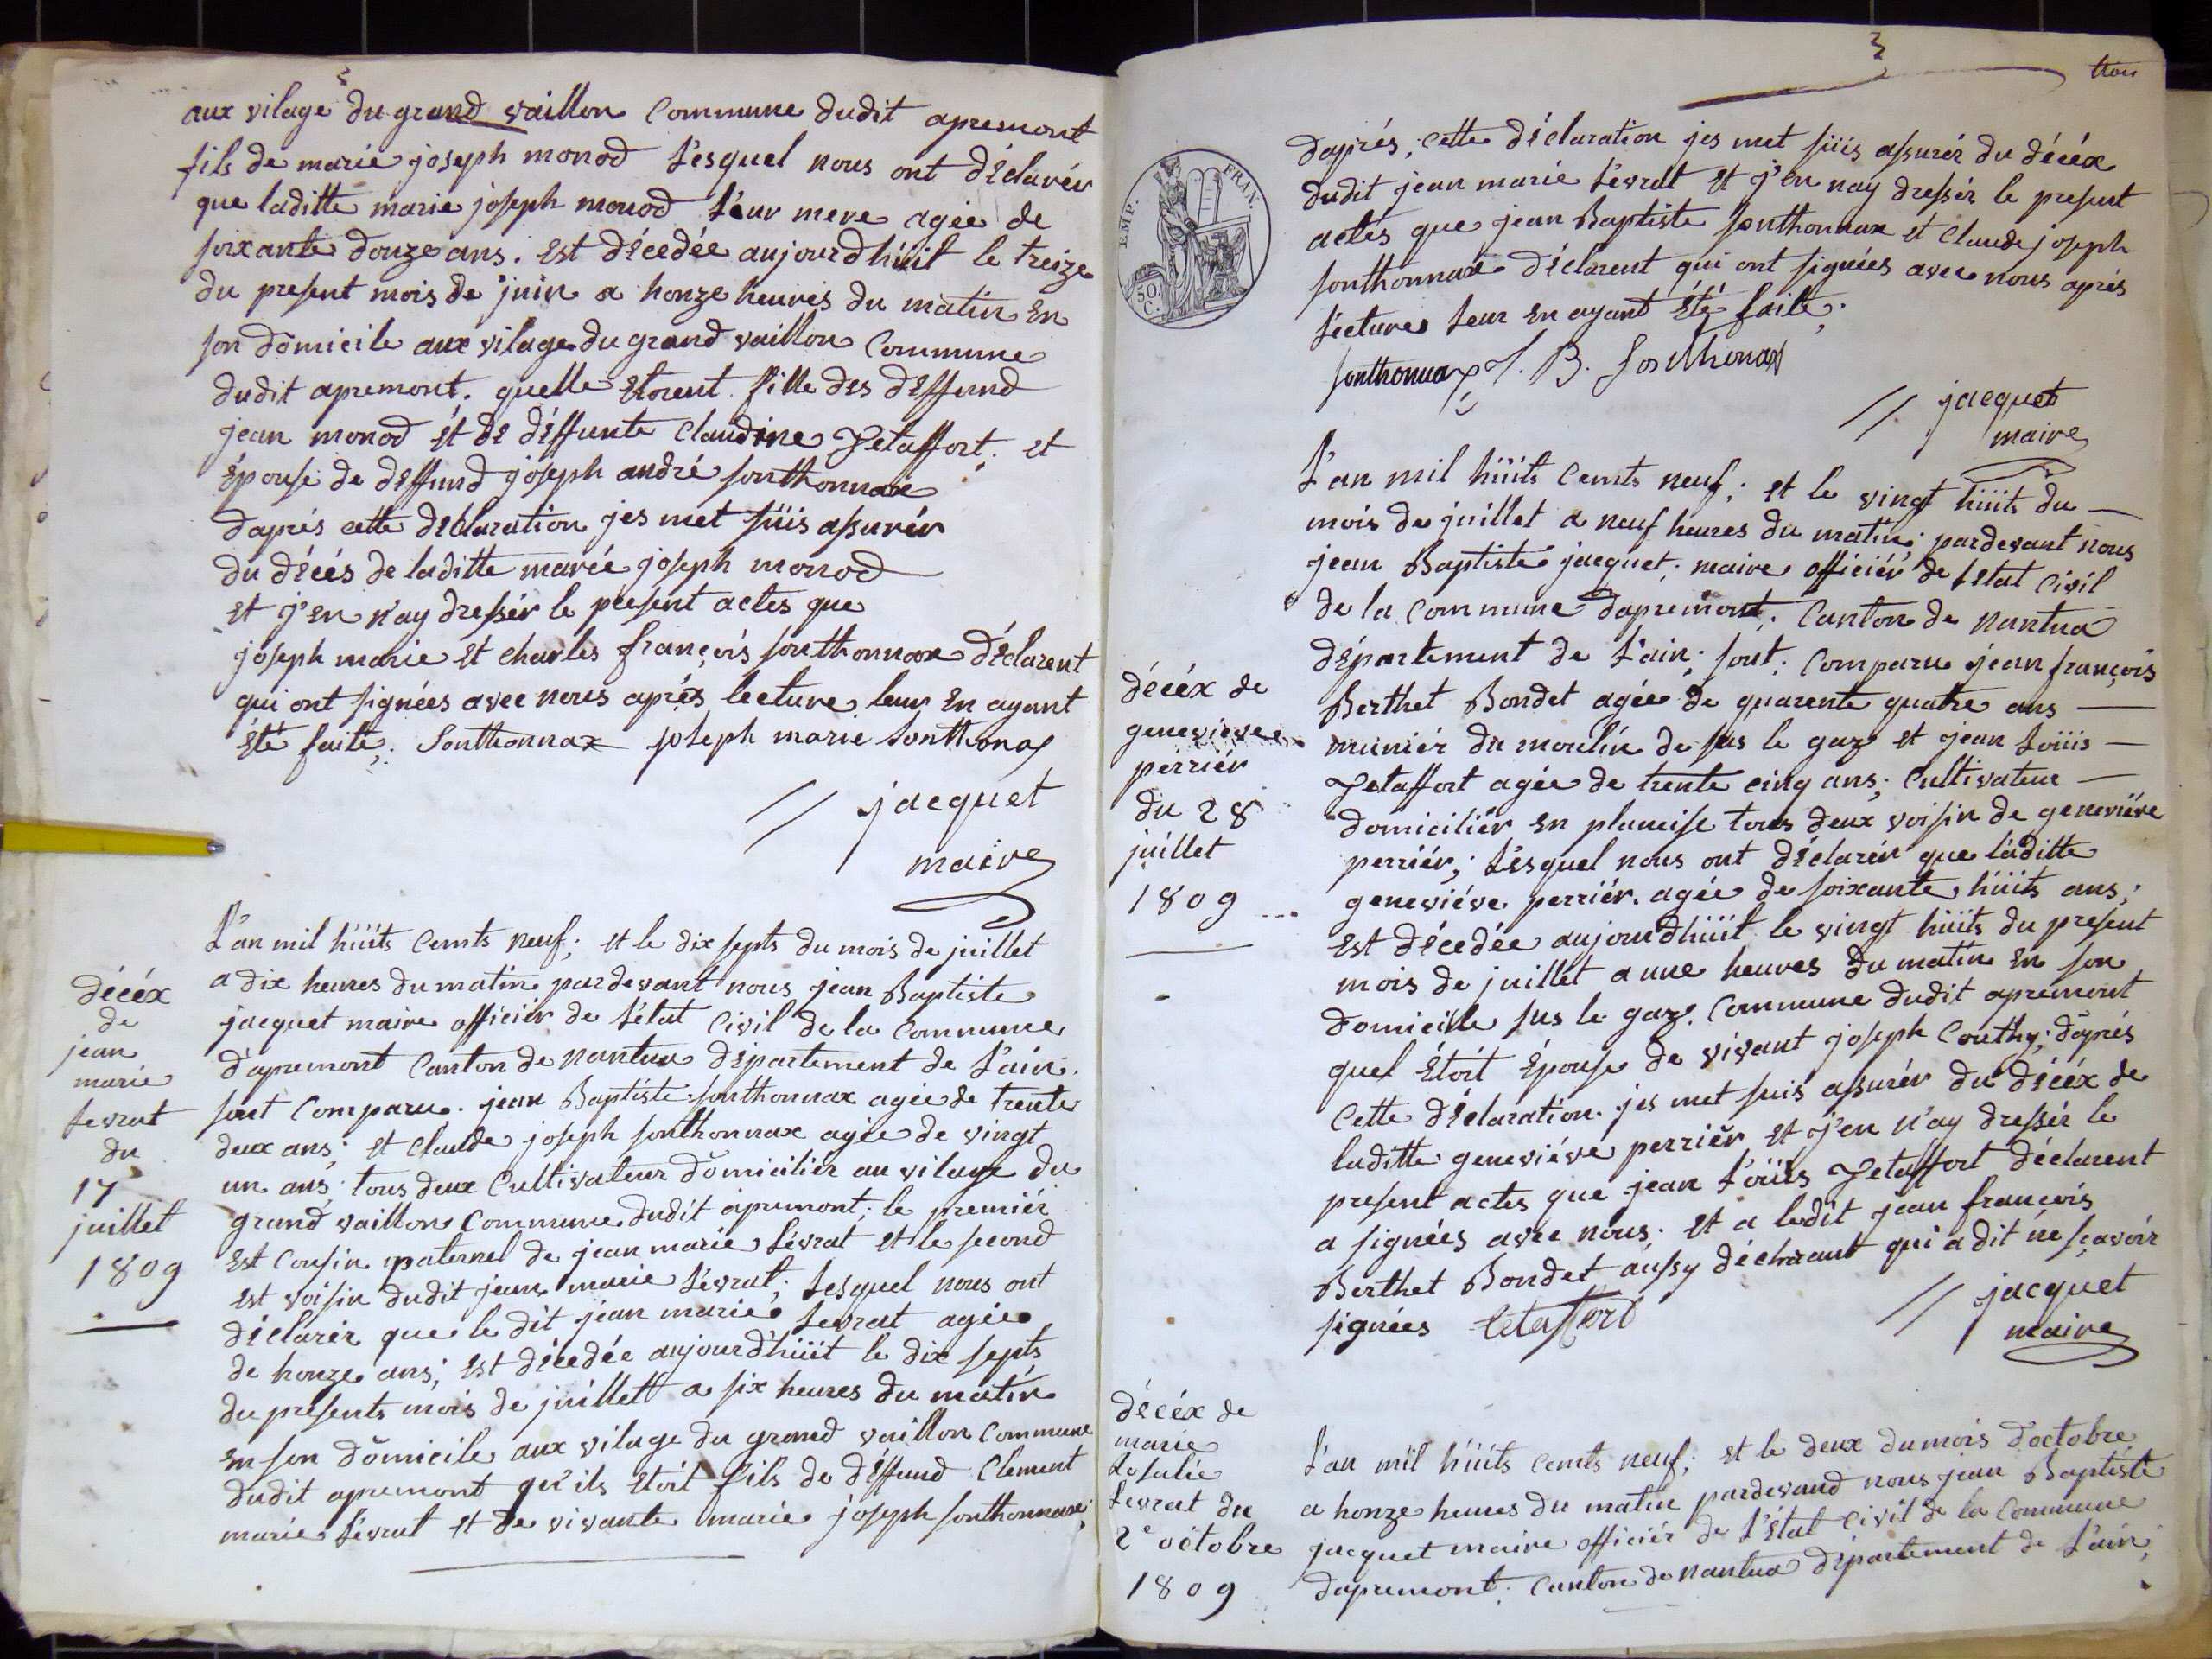 aux vilage du grand vaillon Commune dudit apremont
fils de marie joseph monod Lesquel nous ont déclarér
que laditte marie joseph monod Leur mere agée de
soixante douze ans. est décedée aujourdhüit le treize
du present mois de juin a honze heures du matin en
son domicile aux vilage du grand vaillon Commune
dudit apremont. quelle etoient fille des deffund
jean monod et de déffunte Claudine Jetaffort; et
épouse de deffund joseph andré sonthonnax
daprés cette déclaration jes met süis assurér
du décés de laditte marie joseph monod
et j'en n'ay dressér le present actes que
joseph marie et charles françois sonthonnax déclarent
qui ont signées avec nous aprés lecture leur en ayant
été faite; Sonthonnax joseph marie Sonthonax
// jacquet
maire
décéx
de
jean
marie
Levrat
du
17
juillet
1809
L'an mil hüits Cents neuf; et le dix septs du mois de juillet
a dix heures du matin pardevant nous jean Baptiste
jacquet maire officiér de L'état Civil de la Commune
d'apremont Canton de nantua département de L'ain.
sont Comparu. jean Baptiste sonthonnax agée de trente
deux ans; et Claude joseph sonthonnax agée de vingt
un ans; tous deux Cultivateur domiciliér au vilage du
grand vaillon Commune dudit apremont; le premiér
est Cousin paternel de jean marie Levrat et le second
est voisin dudit jean marie Lévrat; Lesquel nous ont
déclarér que le dit jean marie Levrat agée
de honze ans; est décedée aujourd'hüit le dix septs
du presents mois de juillett a six heures du matin
en son domicile aux vilage du grand vaillon Commune
dudit apremont qu'ils étoit fils de déffund Clement
marie Lévrat et de vivante marie joseph sonthonnax;
3
trois
EMP. FRAN.
50.
C.
daprés; cette déclaration jes met süis assurér du décéx
dudit jean marie Lévrat et j'en nay dressér le present
actés que jean Baptiste sonthonnax et Claude joseph
sonthonnax déclarent qui ont signées avec nous aprés
Lectures Leur en ayant été faite;
sonthonnax J. B. Sonthonax
// jacquet
maire
décéx de
genevieve
perriér
du 28
juillet
1809
L'an mil hüits Cents neuf; et le vingt hüits du
mois de juillet a neuf heures du matin; pardevant nous
jean Baptiste jacquet; maire officiér de Letat Civil
de la Commune dapremont; Canton de nantua
département de L'ain; sont; Comparu jean françois
Berthet Bondet agée de quarente quatre ans
muniér du moulin de sus le gaz et jean Loüis
Jetaffort agée de trente cinq ans; Cultivateur
domiciliér en planeise tous deux voisin de geneviéve
perriér; Lesquel nous ont déclarér que laditte
geneviéve perriér agée de soixante hüits ans;
est décedée aujourdhüit le vingt hüits du present
mois de juillet a une heures du matin en son
domicille sus le gaz; Commune dudit apremont
quel étoit épouse de vivant joseph Couthy; daprés
Cette déclaration jes met suis assurér du décéx de
laditte geneviéve perriér et j'en n'ay dressér le
present actes que jean Loüis Jetaffort déclarent
a signées avec nous; et a ledit jean francois
Berthet Bondet aussy déclarant qui a dit ne sçavoir
signées Letaffort
// jacquet
maire
décéx de
marie
Rosalie
Levrat du
2e octobre
1809
L'an mil hüits Cents neuf; et le deux du mois d'octobre
a honze heures du matin pardevand nous jean Baptiste
jacquet maire officiér de L'état Civil de la Commune
dapremont; Canton de nantua département de L'ain;